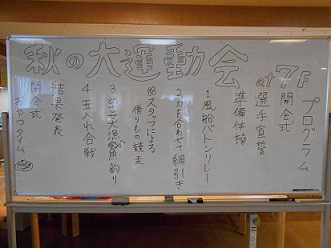 秋の大運動会 at 7F
プログラム
開会式
選手宣誓
準備体操
1 風船バトンリレー
2 力を合わせて綱引き
※スタッフによる
借りもの競走
3 大漁魚釣り
4 玉入れ合戦
結果発表
閉会式
おやつタイム